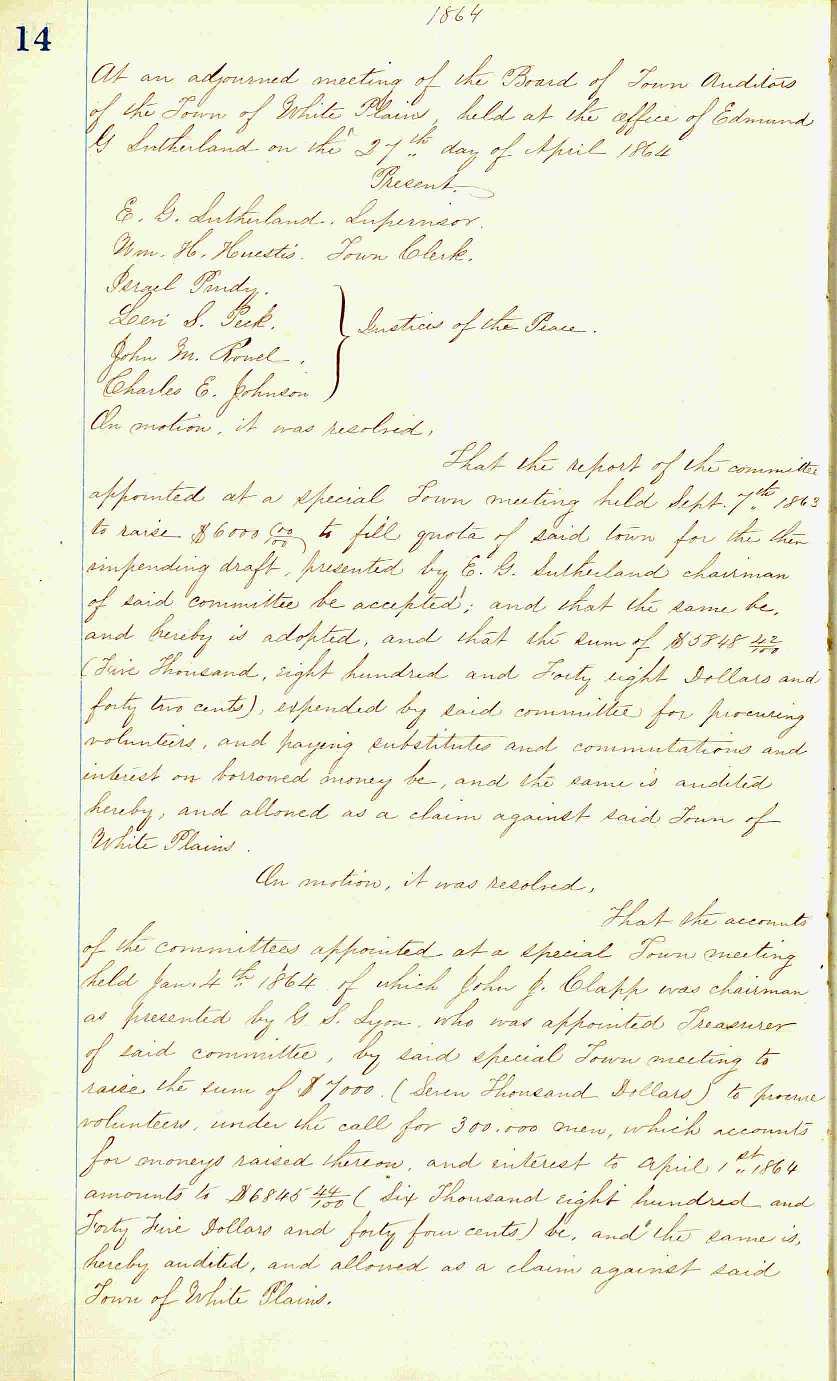 1864
14
At an adjourned meeting of the Board of Town Auditors
of the Town of White Plains, held at the office of Edmund
G Sutherland on the 27th day of April 1864
Present.
E. G. Sutherland. Supervisor.
Wm. H. Huestis. Town Clerk.
Israel Purdy.
Levi S. Peck.
Justices of the Peace.
John M. Rowel.
Charles E. Johnson
On motion, it was resolved,
That the report of the committee
appointed at a special Town meeting held Sept. 7th 1863
to raise $6000 00/100 to fill quota of said town for the then
impending draft, presented by E. G. Sutherland chairman
of said committee be accepted; and that the same be,
and hereby is adopted, and that the sum of $5848 42/100
(Five Thousand, eight hundred and Forty eight Dollars and
forty two cents), expended by said committee for procuring
volunteers, and paying substitutes and commutations and
interest on borrowed money be, and the same is audited
hereby, and allowed as a claim against said Town of
White Plains.
On motion, it was resolved,
That the accounts
of the committees appointed at a special Town meeting
held Jan. 4th 1864 of which John J. Clapp was chairman
as presented by G. S. Lyon. who was appointed Treasurer
of said committee, by said special Town meeting to
raise the sum of $7000. (Seven Thousand Dollars) to procure
volunteers, under the call for 300.000 men, which accounts
for moneys raised thereon, and interest to April 1st 1864
amounts to $6845 44/100 (Six Thousand eight hundred and
Forty Five Dollars and forty four cents) be, and the same is,
hereby audited, and allowed as a claim against said
Town of White Plains.